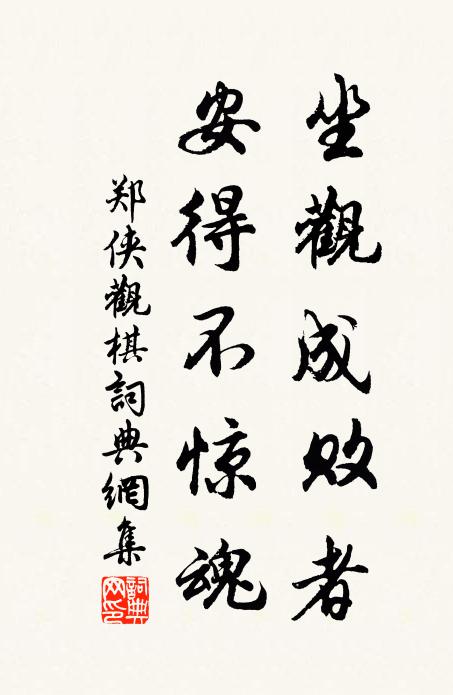 坐觀成败者
安得不惊魂
郑侠觀棋詞典網集
詞典网印